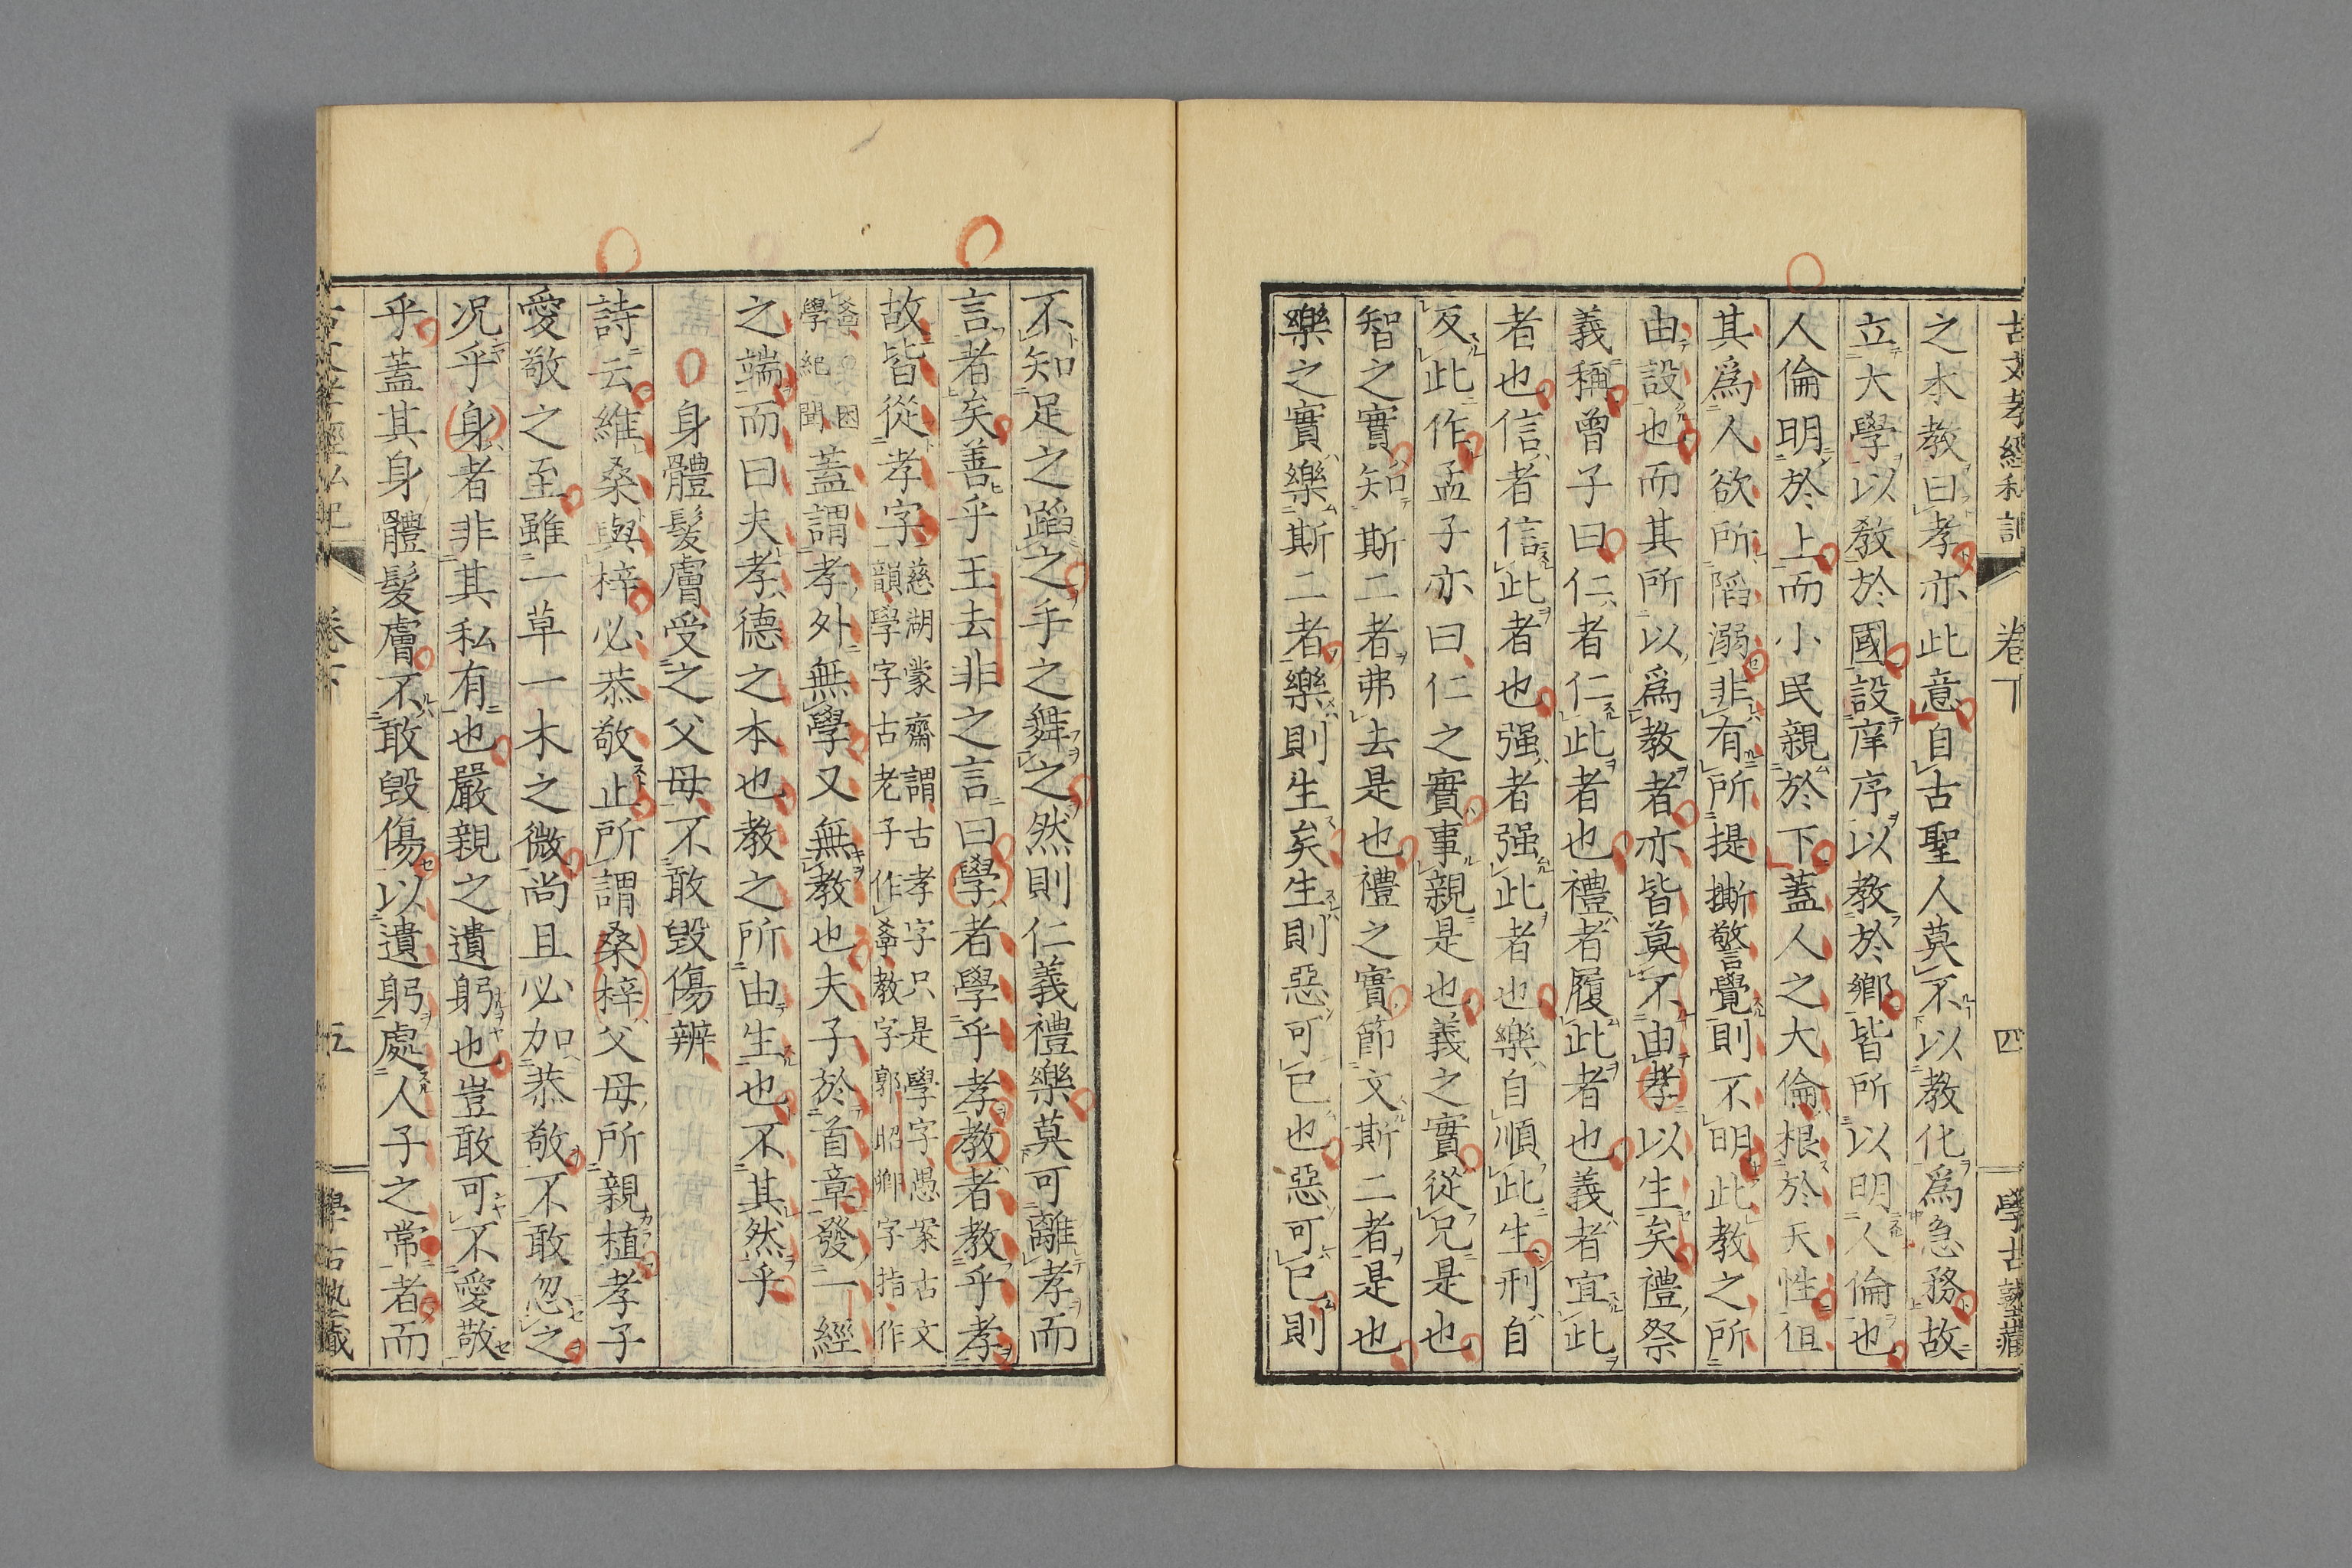 古文孝經私記 卷下 四 學古塾藏
之本教曰孝亦此意自古聖人莫不以教化爲急務故
立大學以教於國設庠序以教於鄉皆所以明人倫也
人倫明於上而小民親於下蓋人之大倫根於天性但
其爲人欲所陷溺非有所提撕警覺則不明此教之所
由設也而其所以爲教者亦皆莫不由孝以生矣禮祭
義稱曾子曰仁者仁此者也禮者履此者也義者宜此
者也信者信此者也强者强此者也樂自順此生刑自
反此作孟子亦曰仁之實事親是也義之實從兄是也
智之實知斯二者弗去是也禮之實節文斯二者是也
樂之實樂斯二者樂則生矣生則惡可已也惡可已則
不知足之蹈之手之舞之然則仁義禮樂莫可離孝而
言者矣善乎王去非之言曰學者學乎孝教者教乎孝
故皆從孝字
慈湖蒙齋謂古孝字只是學字愚案古文
韻學字古老子作㝯教字郭昭卿字指作
困
學紀聞
蓋謂孝外無學又無教也夫子於首章發一經
之端而曰夫孝德之本也教之所由生也不其然乎
身體髮膚受之父母不敢毀傷辨
詩云維桑與梓必恭敬止所謂桑梓父母所親植孝子
愛敬之至雖一草一木之微尚且必加恭敬不敢忽之
况乎身者非其私有也嚴親之遺躬也豈敢可不愛敬
乎蓋其身體髮膚不敢毀傷以遺躬處人子之常者而
古文孝經私記 卷下 五 學古塾藏